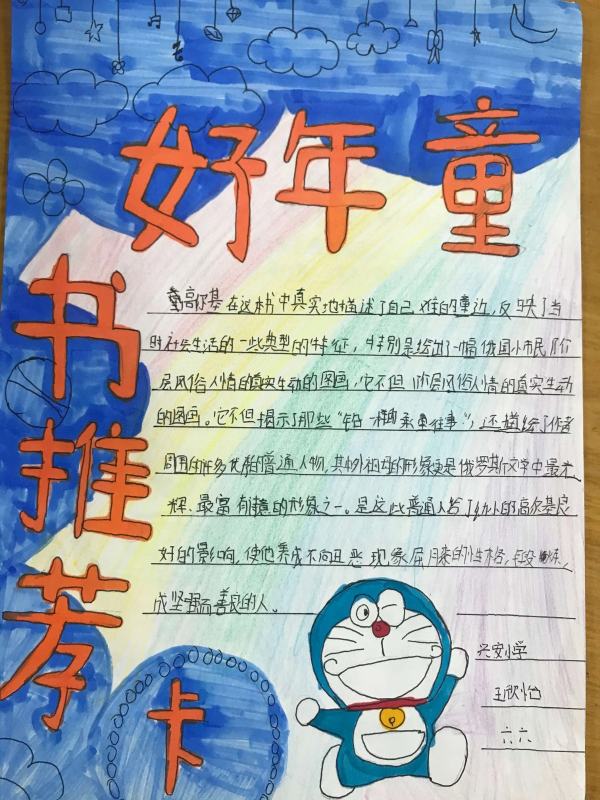 好年童
书推荐卡
高尔基在这本书中真实地描述了自己难的童边,反映了当
时社会生活的一些典型的特征,特别是绘出了一幅俄国小市民阶
层风俗人情的真实生动的图画,它不但 层风俗人情的真实生动
的图画。它不但揭示了那些"铅一样 重往事",还描绘了作者
周围的许多优 的普通人物,其中外祖母的形象更是俄罗斯文学中最光
辉、最富有 的形象之一。是这些普通人给了幼小的高尔基良
好的影响,使他养成不向丑恶现象屈 的性格,
成坚强而善良的人。
兴安小学
王欣怡
六六